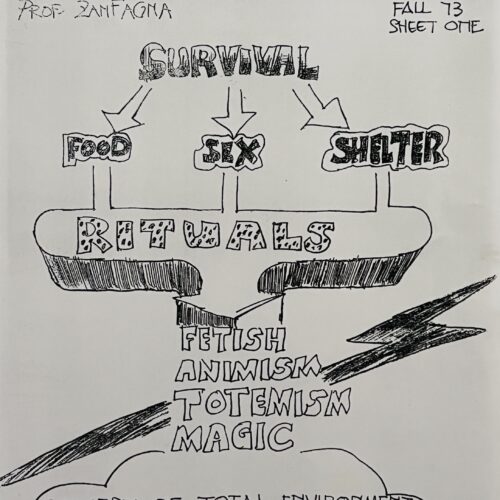 PROF. ZANFAGNA
FALL 73
SHEET ONE
SURVIVAL
FOOD SEX SHELTER
RITUALS
FETISH
ANIMISM
TOTEMISM
MAGIC
OF TOTAL ENVIRONMENT